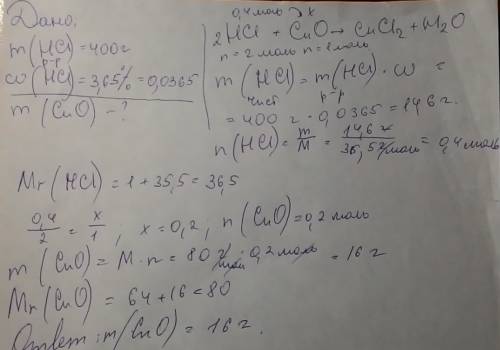 Дано:
m(HCl) = 400г
р-р
ω(HCl) = 3,65% = 0,0365
m(CuO) - ?
0,4моль x
2HCl + CuO → CuCl₂ + H₂O
n = 2моль n = 1моль
m(HCl) = m(HCl) · ω =
чист р-р
= 400 г · 0,0365 = 14,6 г.
n(HCl) = m/M = 14,6 г / 36,5 г/моль = 0,4моль
Mr(HCl) = 1 + 35,5 = 36,5
0,4/2 = x/1 ; x = 0,2 ; n(CuO) = 0,2 моль
m(CuO) = M · n = 80 г/моль · 0,2 моль = 16 г
Mr(CuO) = 64 + 16 = 80
Ответ: m(CuO) = 16 г.